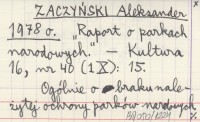 ZACZYŃSKI Aleksander
1978 r. "Raport o parkach
narodowych". – Kultura
16, nr 40 (1 X): 15.
Ogólnie o braku nale-
żytej ochrony parków narodowych